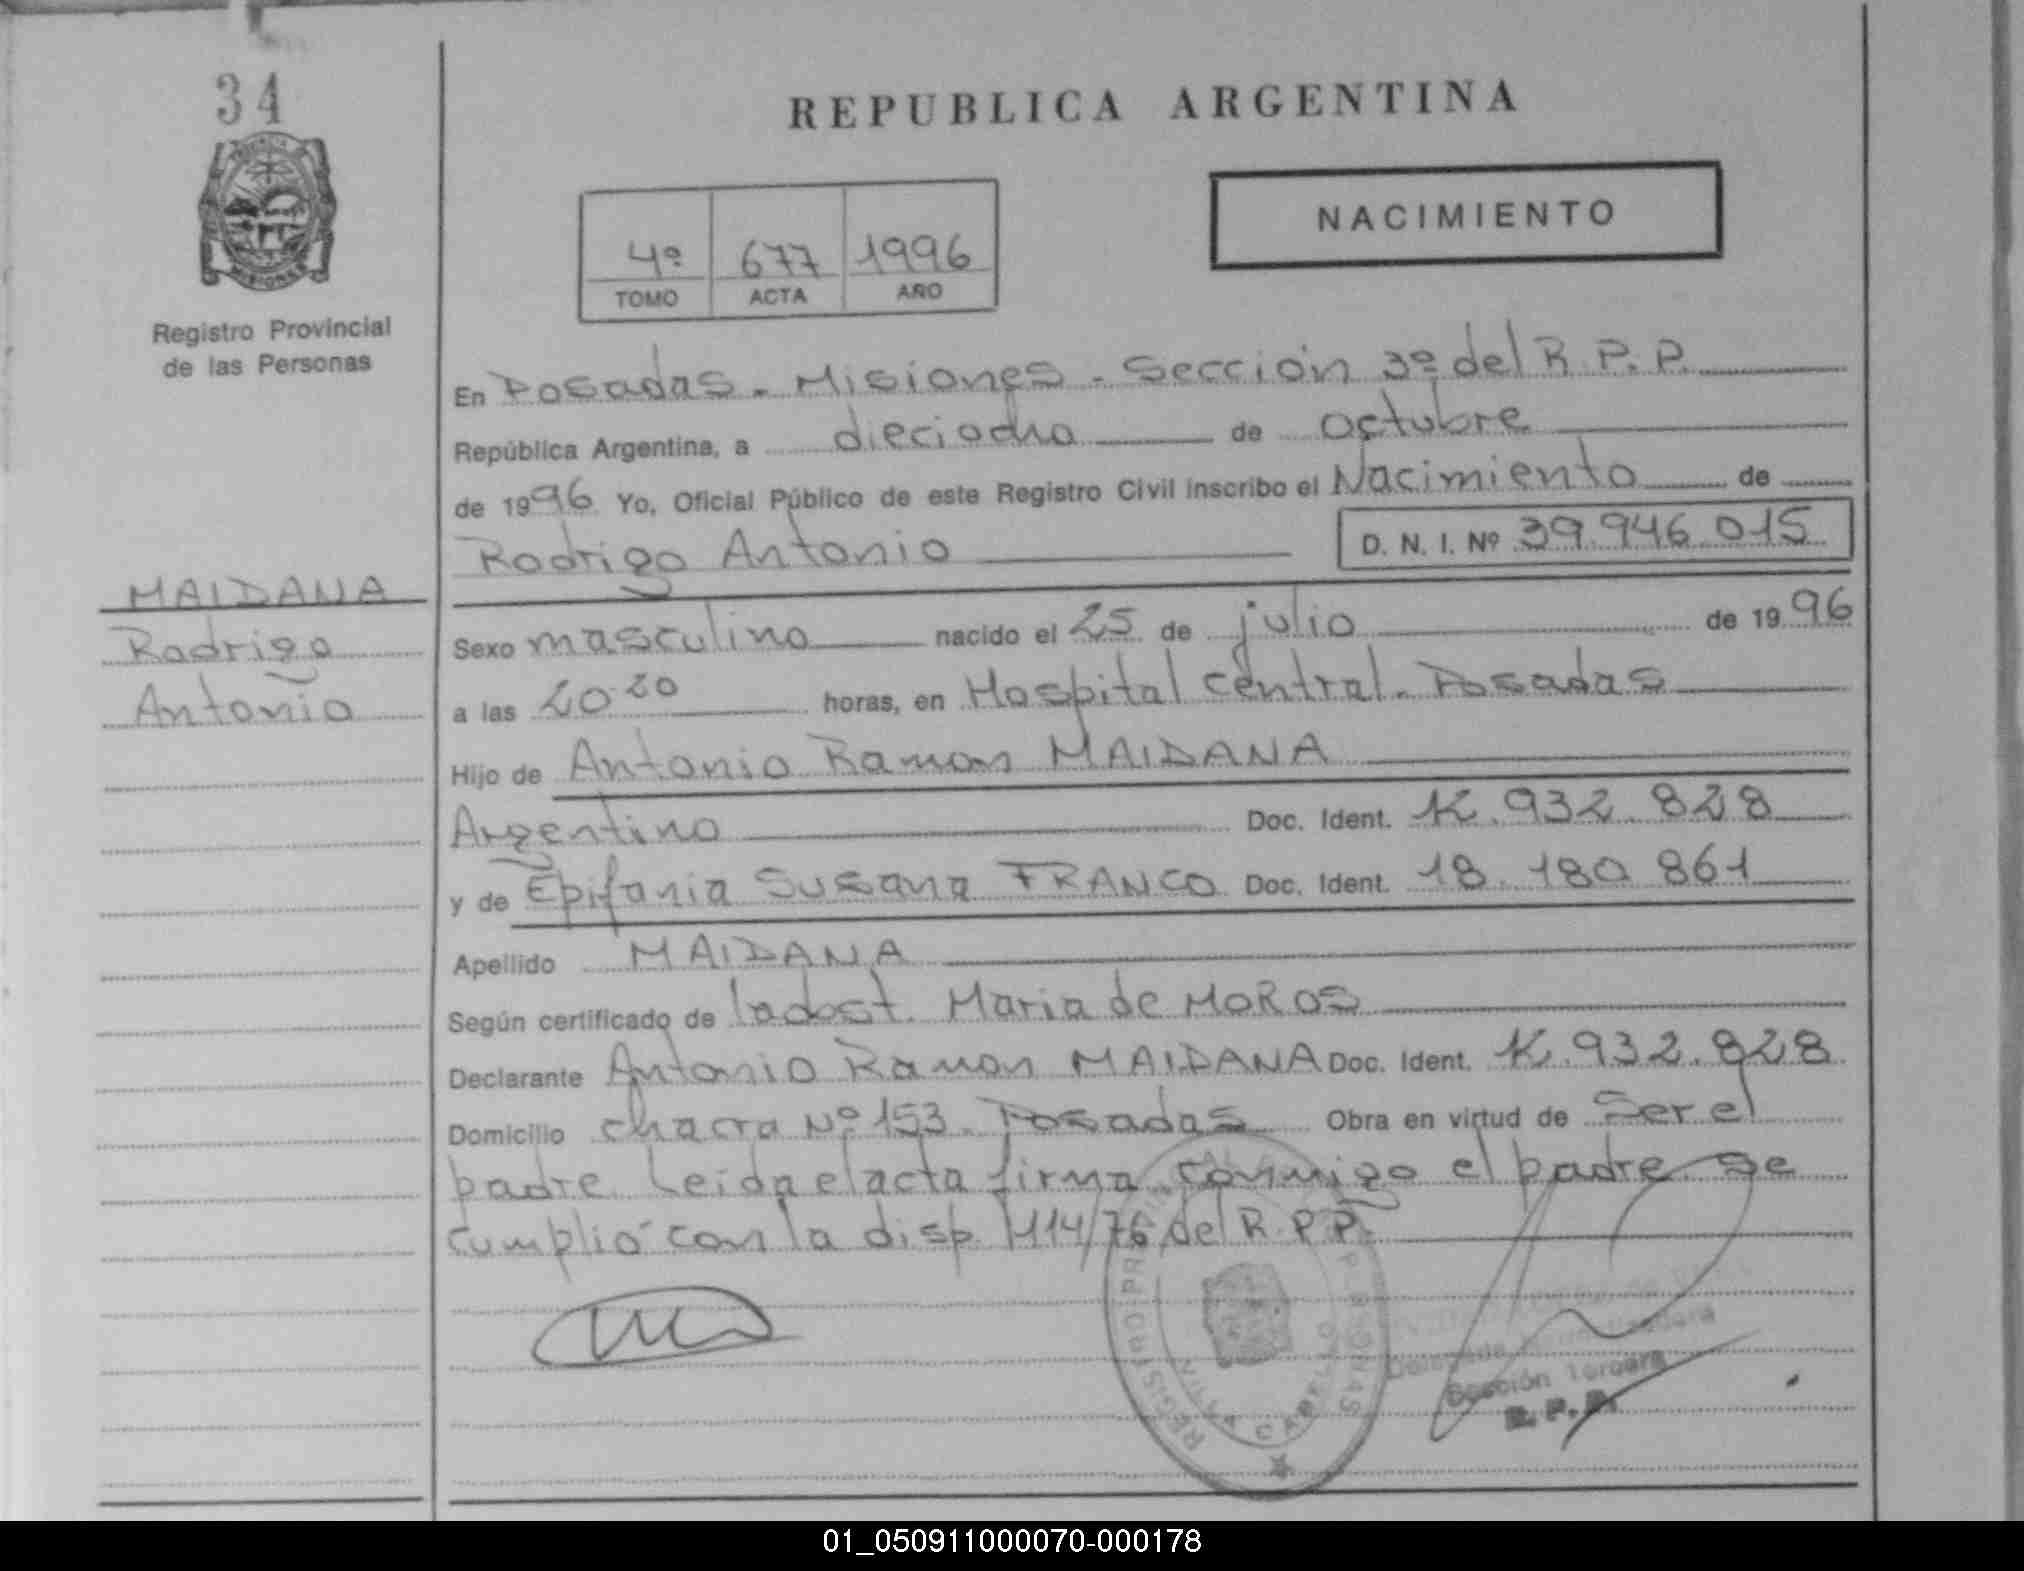 34
REPUBLICA ARGENTINA
NACIMIENTO
4º 677 1996
TOMO ACTA AÑO
Registro Provincial
de las Personas
En Posadas - Misiones - Sección 3º del R.P.P.
República Argentina, a dieciocho de octubre
de 1996 Yo, Oficial Público de este Registro Civil inscribo el Nacimiento de
Rodrigo Antonio D. N. I. Nº 39.946.015
MAIDANA
Rodrigo
Antonio
Sexo masculino nacido el 25 de julio de 1996
a las 20.20 horas, en Hospital Central - Posadas
Hijo de Antonio Ramon MAIDANA
Argentino Doc. Ident. 14.932.828
y de Epifania Susana FRANCO Doc. Ident. 18.180.861
Apellido MAIDANA
Según certificado de la obst. Maria de MOROS
Declarante Antonio Ramon MAIDANA Doc. Ident. 14.932.828
Domicilio chacra Nº 153 - Posadas Obra en virtud de Ser el
padre. Leida el acta firma conmigo el padre se
cumplió con la disp. 114/76 del R.P.P.
REGISTRO PERSONAS
CABELLO
Sección Tercera
R. P. P.
01_050911000070-000178